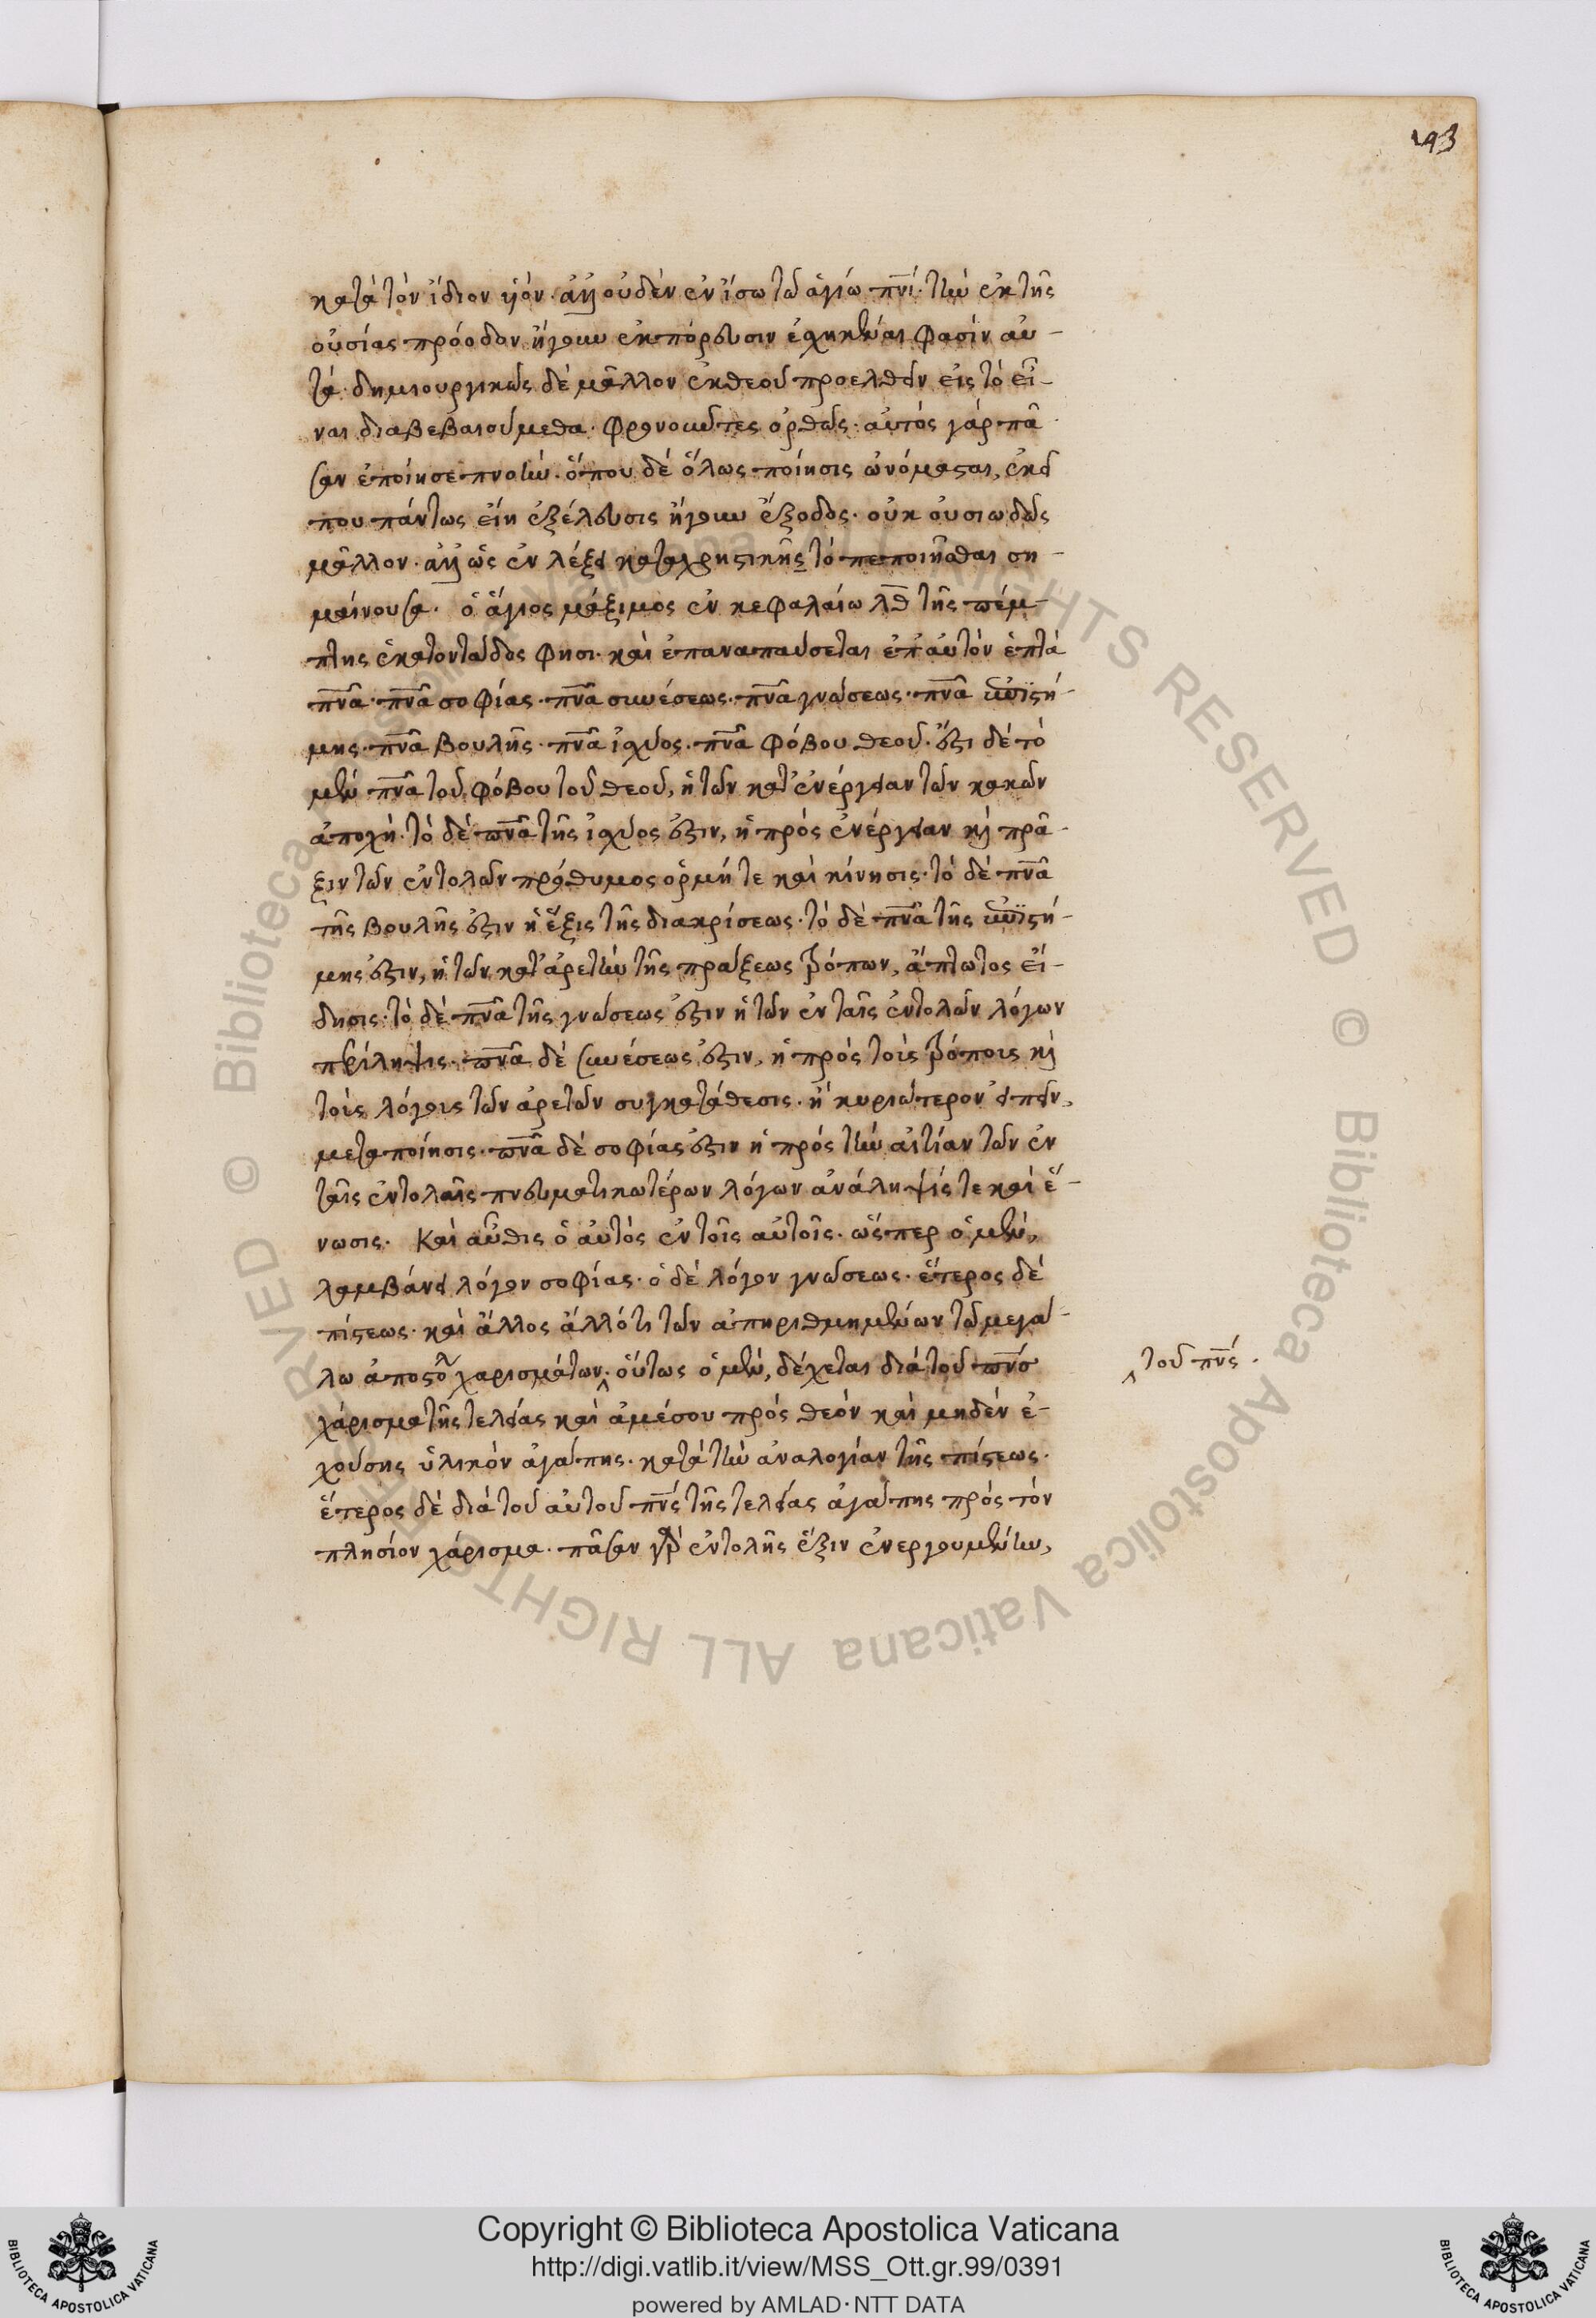 193
κατὰ τὸν ἴδιον υἱόν. ἀλλ' οὐδὲν ἐν ἴσω τῶ ἁγίω πνί. τὴν ἐκ τῆς
οὐσίας πρόοδον ἤγουν ἐκπόρευσιν ἐσχηκέναι φασὶν αὐ-
τά. δημιουργικῶς δὲ μᾶλλον ἐκ θεοῦ προελθεῖν εἰς τὸ εἶ-
ναι διαβεβαιούμεθα. φρονοῦντες ὀρθῶς. αὐτὸς γὰρ πᾶ
σαν ἐποίησε πνοήν. ὅπου δὲ ὅλως ποίησις ὠνόμασται, ἐκεῖ
που πάντως εἴη ἐξέλευσις ἤγουν ἔξοδος. οὐκ οὐσιωδῶς
μᾶλλον. ἀλλ' ὡς ἐν λέξει καταχρηστικῆς τὸ πεποιῆσθαι ση-
μαίνουσα. ὁ ἅγιος μάξιμος ἐν κεφαλαίω λθ τῆς πέμ-
πτης ἑκατοντάδος φησι. καὶ ἐπαναπαύσεται ἐπ' αὐτὸν ἑπτὰ
πνᾶ. πνᾶ σοφίας. πνᾶ συνέσεως. πνᾶ γνώσεως. πνᾶ ἐπιστή-
μης. πνᾶ βουλῆς. πνᾶ ἰσχύος. πνᾶ φόβου θεοῦ. ἔστι δὲ τὸ
μὲν πνᾶ τοῦ φόβου τοῦ θεοῦ, ἡ τῶν κατ' ἐνέργειαν τῶν κακῶν
ἀποχή. τὸ δὲ πνᾶ τῆς ἰσχύος ἐστιν, ἡ πρὸς ἐνέργειαν καὶ πρᾶ-
ξιν τῶν ἐντολῶν πρόθυμος ὁρμή τε καὶ κίνησις. τὸ δὲ πνᾶ
τῆς βουλῆς ἐστιν ἡ ἕξις τῆς διακρίσεως. τὸ δὲ πνᾶ τῆς ἐπιστή-
μης ἐστιν, ἡ τῶν κατ' ἀρετὴν τῆς πράξεως τρόπων, ἄπτωτος εἴ-
δησις. τὸ δὲ πνᾶ τῆς γνώσεως ἐστιν ἡ τῶν ἐν ταῖς ἐντολῶν λόγων
περίληψις. πνᾶ δὲ συνέσεως ἐστιν, ἡ πρὸς τοὺς τρόπους καὶ
τοὺς λόγους τῶν ἀρετῶν συγκατάθεσις. ἢ κυριώτερον εἰπεῖν,
μεταποίησις. πνᾶ δὲ σοφίας ἐστιν ἡ πρὸς τὴν αἰτίαν τῶν ἐν
ταῖς ἐντολαῖς πνευματικωτέρων λόγων ἀνάληψίς τε καὶ ἕ-
νωσις. Καὶ αὖθις ὁ αὐτὸς ἐν τοῖς αὐτοῖς. ὥσπερ ὁ μὲν,
λαμβάνει λόγον σοφίας. ὁ δὲ λόγον γνώσεως. ἕτερος δὲ
πίστεως. καὶ ἄλλος ἄλλό τι τῶν ἀπηριθμημένων τῶ μεγά-
λω ἀποστό χαρισμάτων. οὕτως ὁ μὲν, δέχεται διὰ τοῦ πνσ
χάρισμα τῆς τελείας καὶ ἀμέσου πρὸς θεὸν καὶ μηδὲν ἐ-
χούσης ὑλικὸν ἀγάπης. κατὰ τὴν ἀναλογίαν τῆς πίστεως.
ἕτερος δὲ διὰ τοῦ αὐτοῦ πνς τῆς τελείας ἀγάπης πρὸς τὸν
πλησίον χάρισμα. πᾶσαν γὰρ ἐντολῆς ἕξιν ἐνεργουμένην,
τοῦ πνς.
Copyright © Biblioteca Apostolica Vaticana
http://digi.vatlib.it/view/MSS_Ott.gr.99/0391
powered by AMLAD·NTT DATA
BIBLIOTECA APOSTOLICA VATICANA
BIBLIOTECA APOSTOLICA VATICANA
© Biblioteca Apostolica Vaticana ALL RIGHTS RESERVED
© Biblioteca Apostolica Vaticana ALL RIGHTS RESERVED